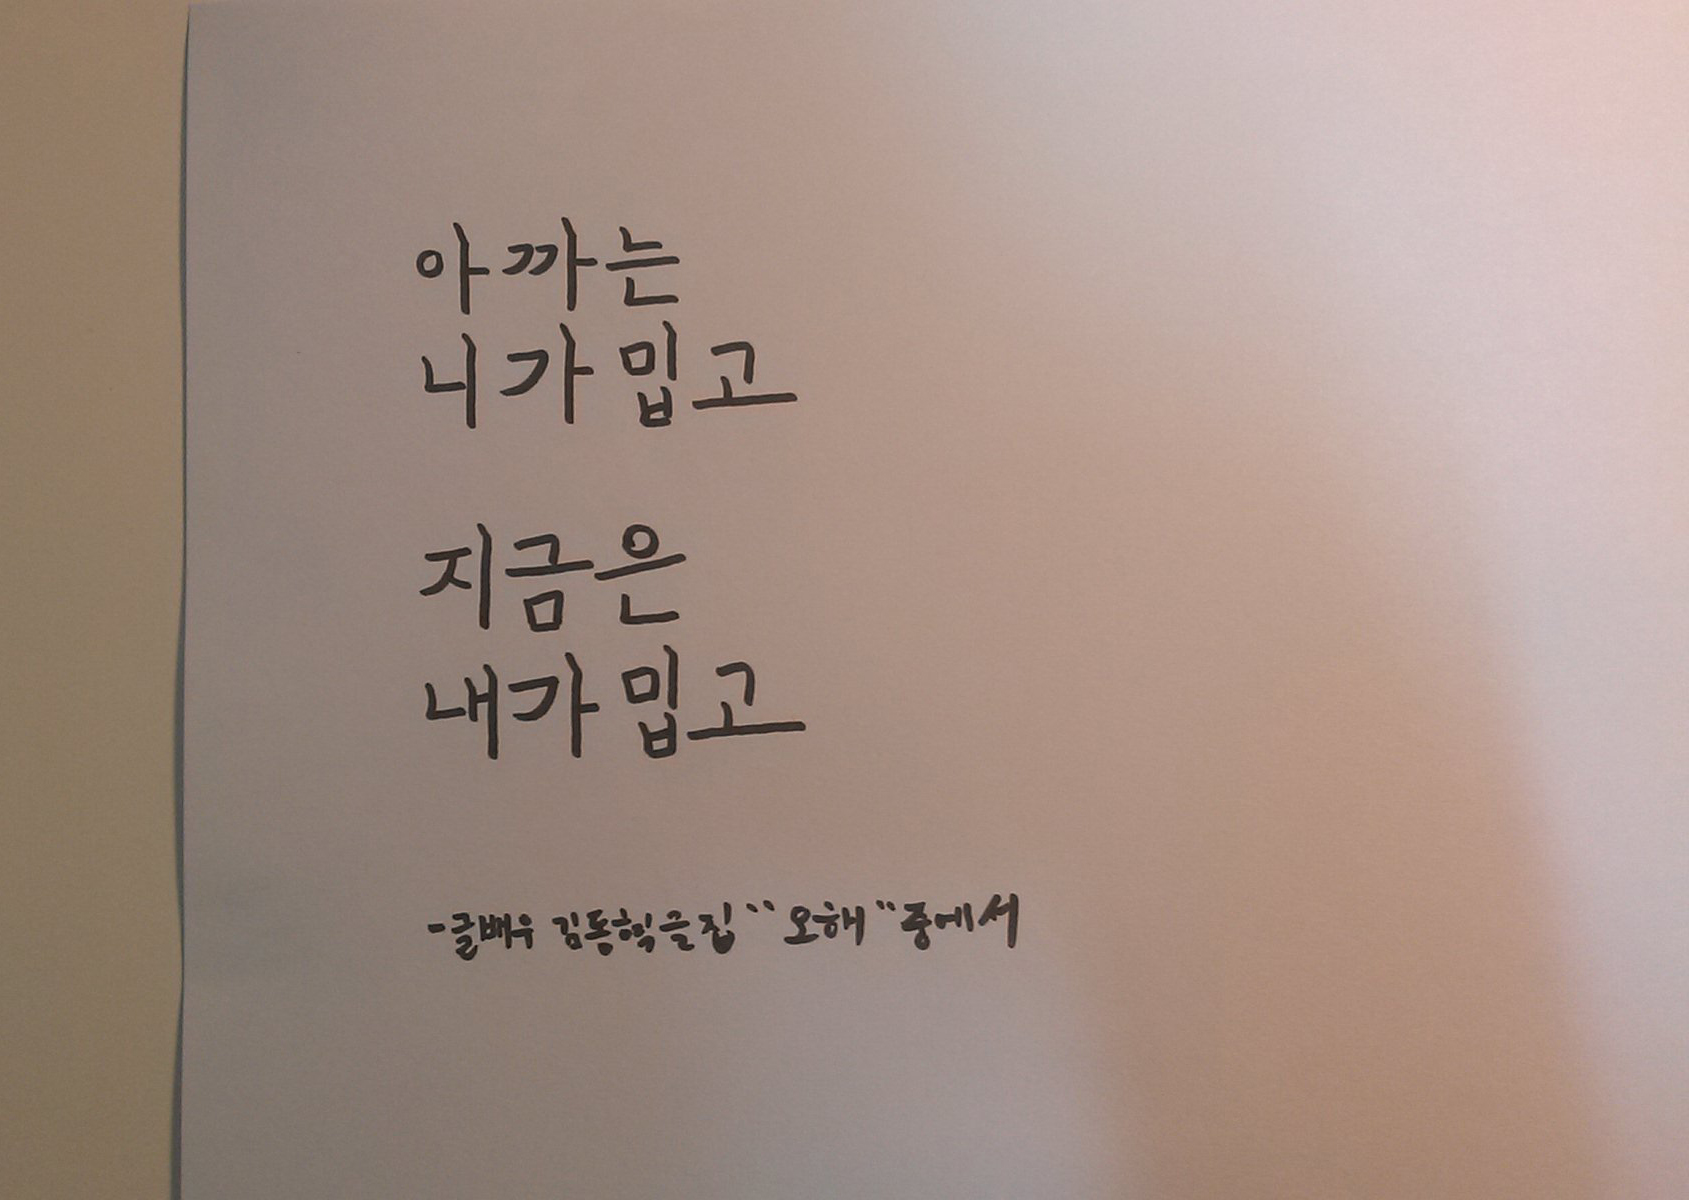 아까는
니가 밉고
지금은
내가 밉고
-글배우 김동혁 글집 "오해" 중에서